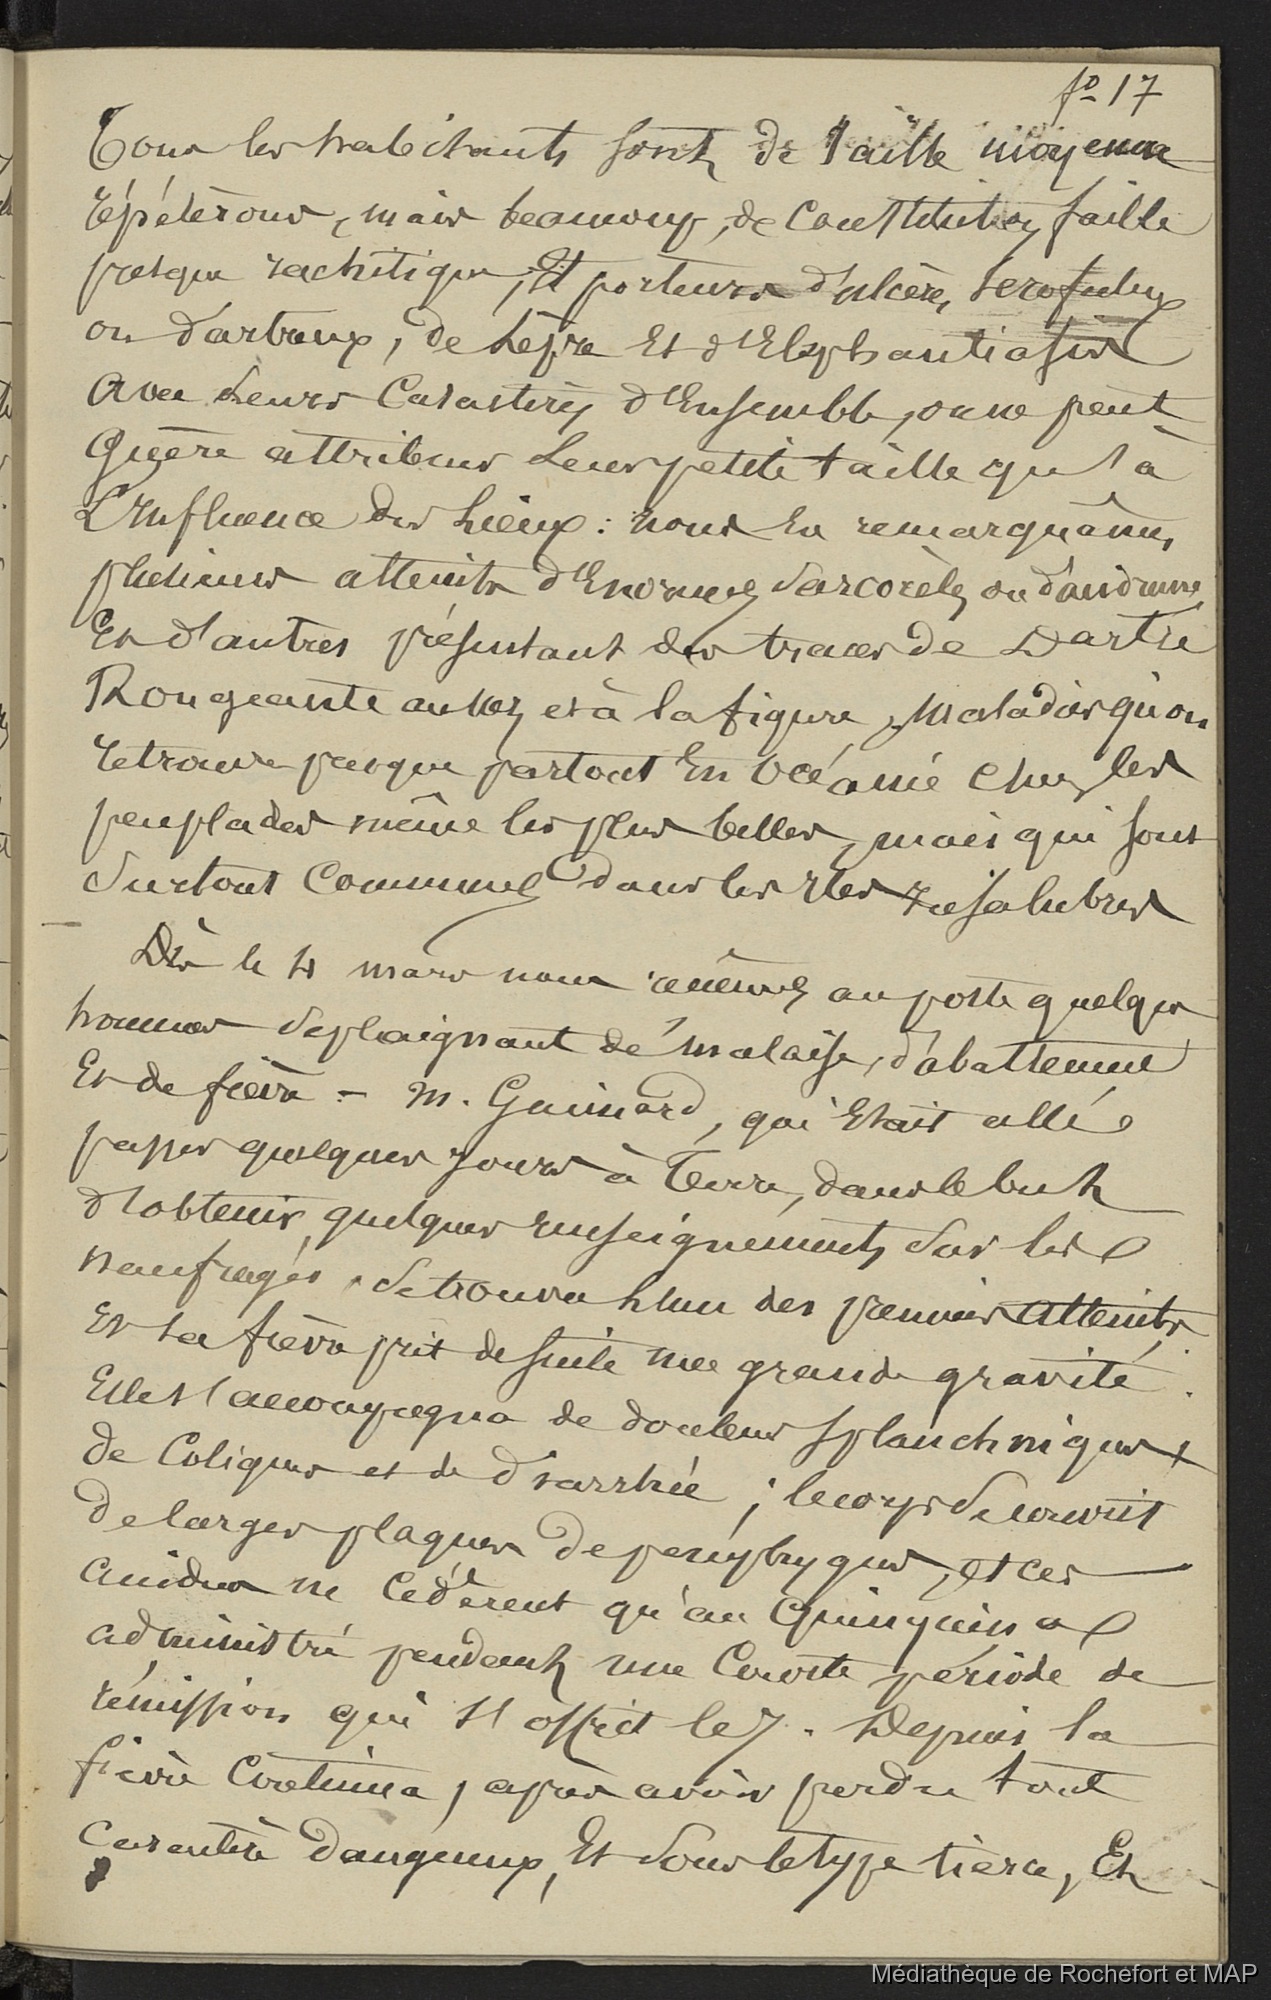 fo 17
Tous les habitants sont de taille moyenne
répéterons, mais beaucoup, de Constitution faible
presque rachitique, Et porteurs d'ulcères scrofuleux
ou dartreux, de Lèpre Et d'Elephantiasis
Avec Leurs Caractères d'Ensemble, on ne peut
Guère attribuer Leur petite taille qu'à
L'Influence des Lieux : nous En remarquâmes
plusieurs atteints d'Enormes Sarcocèles ou d'andrum,
Et d'autres présentant des traces de Dartre
Rongeante au nez et à la figure, Maladies qu'on
retrouve presque partout En Océanie chez les
peuplades même les plus belles, mais qui sont
Surtout Communes dans les Iles Insalubres
Dès le 4 mars nous eûmes au poste quelques
hommes Se plaignant de malaise, d'abattement
Et de fièvre - M. Gaimard, qui Etait allé
passer quelques jours à terre, dans le but
d'obtenir quelques renseignements Sur les
naufragés, Se trouva l'un des premiers Atteints,
Et sa fièvre prit de suite une grande gravité.
Elle s'accompagna de douleurs splanchniques
de Coliques et de diarrhée ; le corps Se couvrit
De larges plaques de pemphygus, et ces
accidens ne Cédèrent qu'au Quinquina
administré pendant une Courte période de
rémission qui s'offrit le 7. Depuis la
fièvre Continua, après avoir perdu tout
Caractère dangereux, Et Sous le type tierce, Et
Médiathèque de Rochefort et MAP